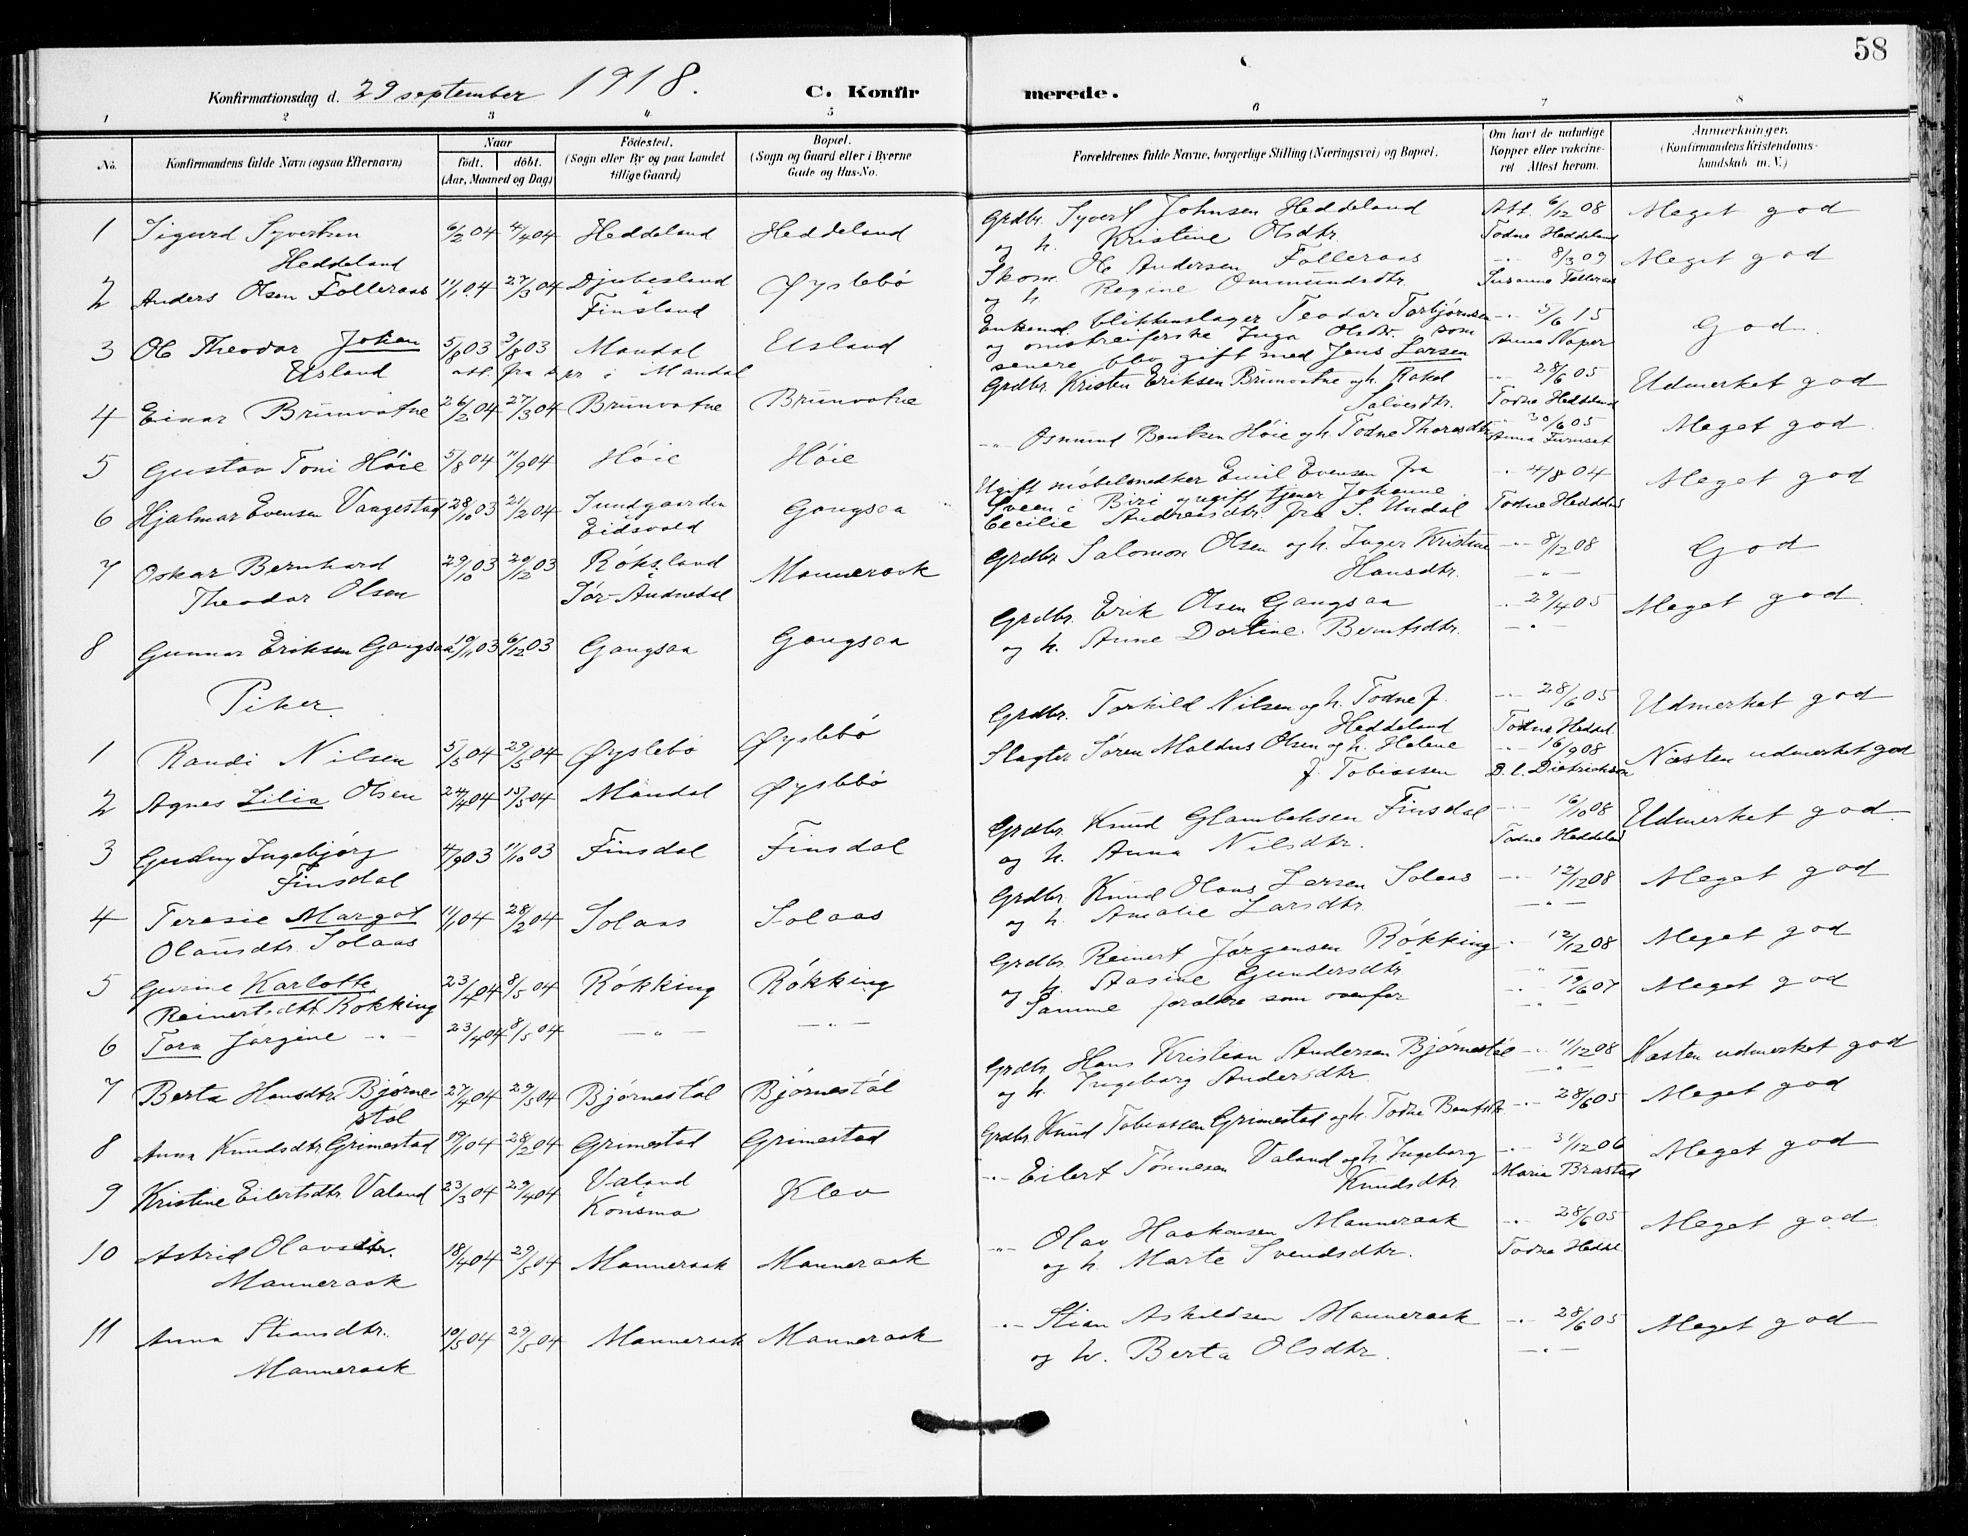 58
Konfirmationsdag d. 29 september 1918. C. Konfirmerede.
1 2 3 4 5 6 7 8
No. Konfirmandens fulde Navn (ogsaa Efternavn) Naar født. døbt. (Aar, Maaned og Dag) Fødested. (Sogn eller By og paa Landet tillige Gaard) Bopæl. (Sogn og Gaard eller i Byerne Gade og Hus-No. Forældrenes fulde Navne, borgerlige Stilling (Næringsvei) og Bopæl. Om havt de naturlige Kopper eller vakcineret Attest herom. Anmerkninger. (Konfirmandens Kristendomskundskab m. V.)
1 Sigurd Syvertsen 6/2 04 4/4 04 Heddeland Heddeland Grdbr. Syvert Johnsen Heddeland Att. 6/12 08 Meget god
Heddeland og h. Kristine Olsdtr. Todne Heddeland
2 Anders Olsen Folleraas 11/1 04 27/3 04 Djubesland i Øyslebø Skom. Ole Andersen Folleraas -"- 8/3 09 Meget god
Finsland og h. Regine Ommundsdtr. Susanne Folleraas
3 Ole Theodor Johan 5/8 03 3/8 03 Mandal Usland Enkem. blikkenslager Teodor Torbjørnsen -"- 5/6 15 God.
Usland att. fra spr i Mandal og omstreiferske Inga Olsdtr. som Anna Naper
senere blev gift med Jens Larsen
4 Einar Brunvatne 26/2 04 27/3 04 Brunvatne Brunvatne Grdbr. Kristen Eriksen Brunvatne og h. Rakel -"- 28/6 05 Udmerket god
Salvesdtr. Todne Heddeland
5 Gustav Toni Høie 5/8 04 11/9 04 Høie Høie -"- Osmund Bentsen Høie og h. Todne Thoresdtr 30/6 05 Meget god.
Anna Furuset
6 Hjalmar Evensen Vangestad 28/10 03 21/2 04 Sundgaarden Gangsaa Ugift møbelsnedker Emil Evensen fra -"- 4/8 04 Meget god
Eidsvold Sveen i Biri og ugift tjener Johanne Todne Heddeland
Cecilie Andreasdtr. fra S. Undal
7 Oskar Bernhard 29/10 03 29/12 03 Røksland Manneraak Grdbr Salomon Olsen og h. Inger Kristine -"- 8/12 08 God
Theodor Olsen Sør-Audnedal Hansdtr. -"-
8 Gunnar Eriksen Gangsaa 19/11 03 6/12 03 Gangsaa Gangsaa Grdbr. Erik Olsen Gangsaa -"- 29/4 05 Meget god.
og h. Anne Dortine Berntsdtr. -"-
Piker
1 Randi Nilsen 5/5 04 29/5 04 Øyslebø Øyslebø Grdbr. Torkild Nilsen og h. Todne f. -"- 28/6 05 Udmerket god
Heddeland Todne Heddel.
2 Agnes Lilia Olsen 24/4 04 15/5 04 Mandal Øyslebø Slagter Søren Maldus Olsen og h. Helene -"- 16/9 08 Næsten udmerket god
f. Tobiassen D. C. Dietrichson
3 Gudny Ingebjørg 4/9 03 11/10 03 Finsdal Finsdal Grdbr. Knud Glambeksen Finsdal -"- 16/10 08 Udmerket god.
Finsdal og h. Anna Nilsdtr. Todne Heddeland
4 Teresie Margot 11/1 04 28/2 04 Solaas Solaas Grdbr. Knud Olaus Larsen Solaas -"- 12/12 08 Meget god
Olausdtr. Solaas og h. Amalie Larsdtr. -"-
5 Gurine Karlotte 23/4 04 8/5 04 Røkking Røkking Grdbr. Reinert Jørgensen Røkking -"- 12/12 08 Meget god
Reinertsdtr Røkking og h. Aasine Gundersdtr -"-
6 Tora Jørgine -"- 23/4 04 8/5 04 -"- -"- Samme foreldre som ovenfor -"- 19/6 07 Meget god
7 Berta Hansdtr Bjørne- 27/4 04 29/5 04 Bjørnestøl Bjørnestøl Grdbr. Hans Kristian Andersen Bjørnestøl -"- 11/12 08 Næsten udmerket god
støl og h. Ingeborg Andersdtr. -"-
8 Anna Knudsdtr Grimestad 19/1 04 28/2 04 Grimestad Grimestad Grdbr. Knud Tobiassen Grimestad og h. Todne Bentsdtr -"- 28/6 05 Meget god
9 Kristine Eilertsdtr Valand 23/3 04 29/4 04 Valand i Klev -"- Eilert Tønnesen Valand og h. Ingeborg -"- 31/12 06 Meget god
Konsmo Knudsdtr Maria Brastad
10 Astrid Olavsdtr. 18/4 04 29/5 04 Manneraak Manneraak -"- Olav Haakonsen Manneraak -"- 28/6 05 Meget god.
Manneraak og h. Marte Svendsdtr. Todne Heddel.
11 Anna Stiansdtr. 10/5 04 29/5 04 Manneraak Manneraak -"- Stian Askildsen Manneraak -"- 28/6 05 Meget god
Manneraak og h. Berta Olsdtr. -"-